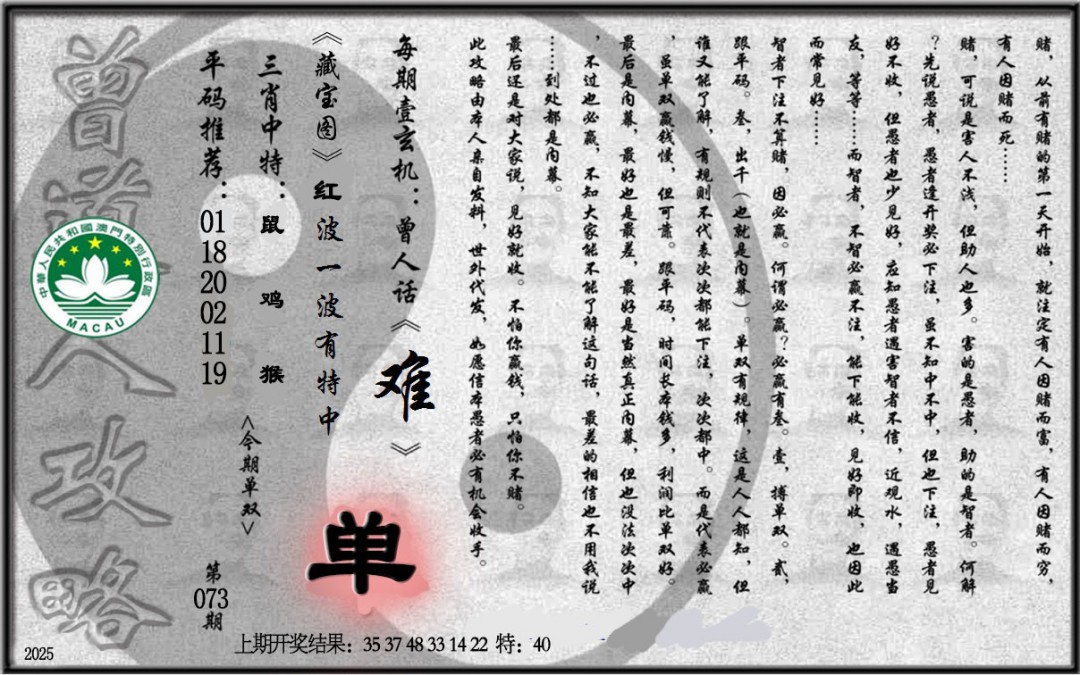 赌，从前有赌的第一天开始，就注定有人因赌而富，有人因赌而穷，
有人因赌而死……
赌，可说是害人不浅，但助人也多。害的是愚者，助的是智者。何解
？先说愚者，愚者逢开奖必下注，虽不知中不中，但也下注，愚者见
好不收，但愚者也少见好，应知愚者遇害智者不信，近观水，遇愚当
友，等等……而智者，不智必赢不注，能下能收，见好即收，也因此
而常见好……
智者下注不算赌，因必赢。何谓必赢？必赢有叁。壹，搏单双。贰，
跟平码。叁，出千（也就是内幕）。单双有规律，这是人人都知，但
谁又能了解，有规则不代表次次都能下注，次次都中。而是代表必赢
，虽单双赢钱慢，但可靠。跟平码，时间长本钱多，利润比单双好。
最后是内幕，最好也是最差，最好是当然真正内幕，但也没法次次中
，不过也必赢，不知大家能不能了解这句话，最差的相信也不用我说
……到处都是内幕。
最后还是对大家说，见好就收。不怕你赢钱，只怕你不赌。
此攻略由本人亲自发料，世外代发，如愿信本愚者必有机会收手。
每期壹玄机：曾人话《难》
《藏宝图》红波一波有特中
三肖中特：鼠 鸡 猴
平码推荐：01 18 20 02 11 19
<今期单双>
单
第073期
曾道人攻略
中華人民共和國澳門特別行政區
MACAU
上期开奖结果：35 37 48 33 14 22 特：40
2025